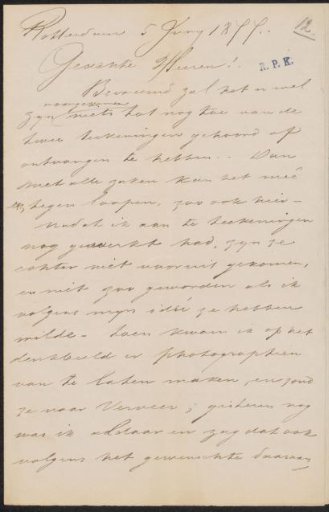 Rotterdam 5 Juny 1877.
12
R.P.K.
Geachte Heeren!
zal het u wel
zyn niets tot nog toe van de
twee teekeningen gehoord of
ontvangen te hebben. Dan
met alle zaken kan het meê
tegen loopen, zoo ook hier
nadat ik aan te teekeningen
nog gewerkt had, zyn ze
echter niet vooruit gekomen,
en niet zoo geworden als ik
volgens myn idéé ze hebben
wilde. Toen kwam ik op het
denkbeeld er photographien
van te laten maken, en zond
ze naar Verveer; gisteren nog
was ik aldaar en zag dat ook
volgens het gewenschte daarvan